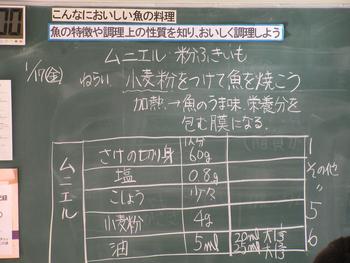 こんなにおいしい魚の料理
魚の特徴や調理上の性質を知り、おいしく調理しよう
ムニエル・粉ふきいも
1/17(金)
ねらい 小麦粉をつけて魚を焼こう
加熱→魚のうま味、栄養分を
包む膜になる。
ムニエル
1人分
さけの切り身 60g 1
塩 0.8g その他
こしょう 少々 〃
小麦粉 4g 5
油 5ml 20ml 大1 6
25ml